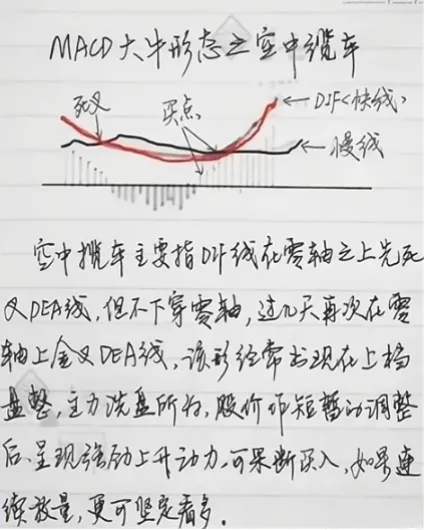 MACD大牛形态之空中缆车
死叉
买点
DIF<快线>
慢线
空中揽车主要指DIF线在零轴之上先死
叉DEA线,但不下穿零轴,过几天再次在零
轴上金叉DEA线,该形经常出现在上档
盘整,主力洗盘所为,股价作短暂的调整
后,呈现强劲上升动力,可果断买入,如果连
续放量,更可坚定看多.